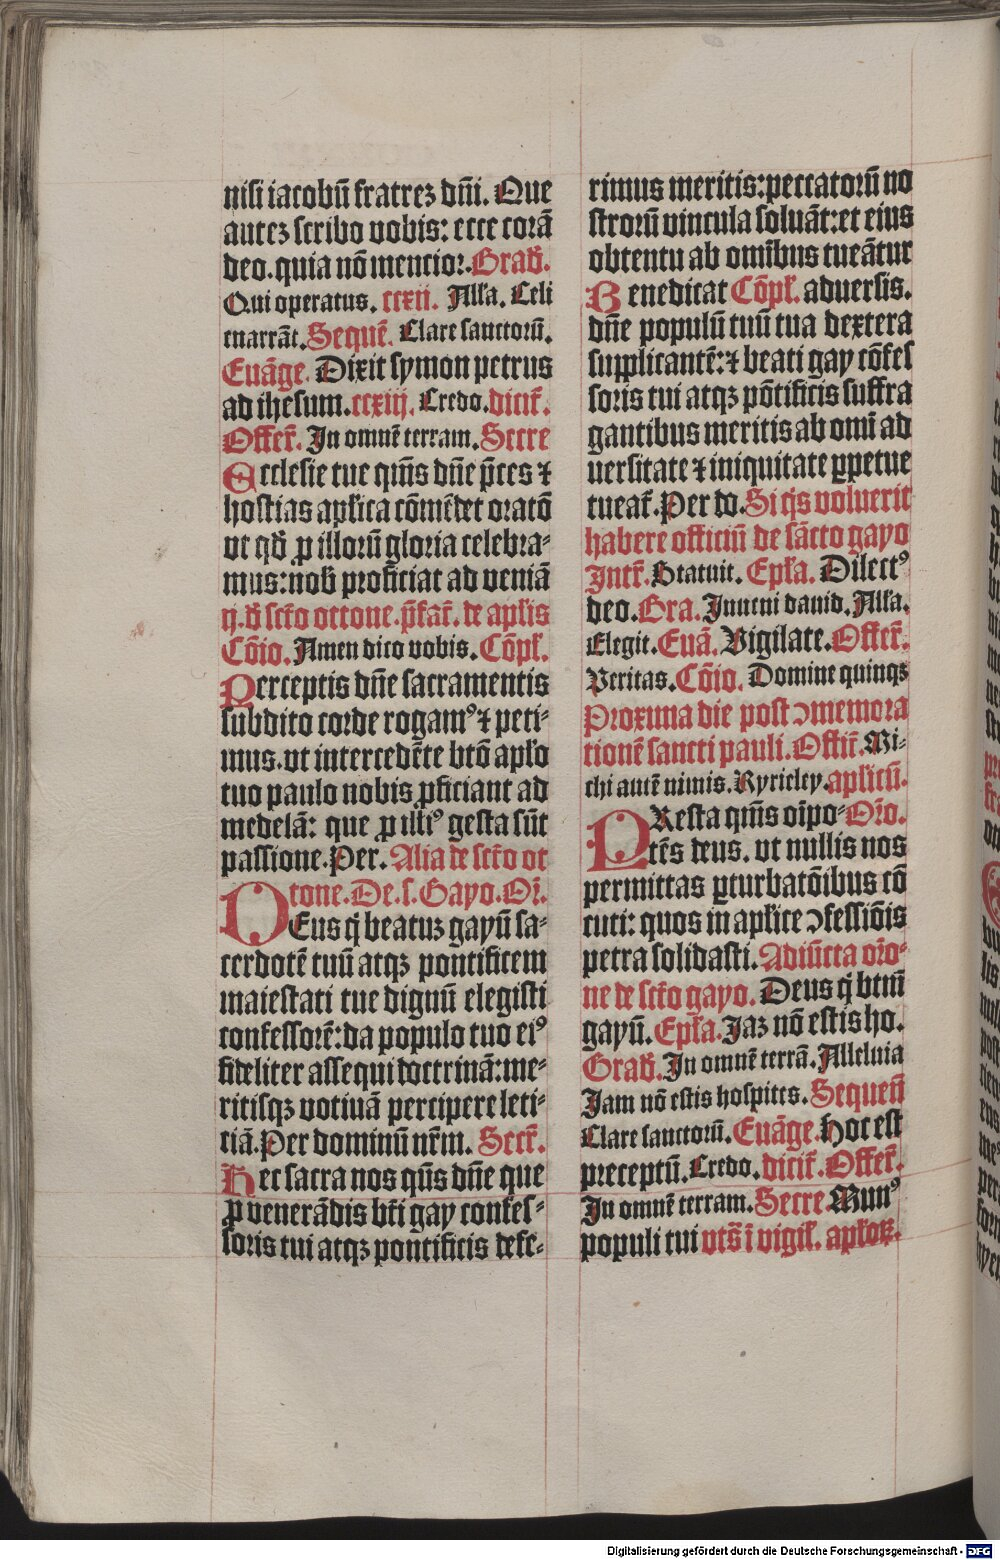 nisi iacobū fratreꝫ dn̄i. Que
auteꝫ scribo vobis: ecce corā
deo. quia nō mencior. Grad̄.
Qui operatus. ccxii. All'a. Celi
enarrāt. Sequē. Clare sanctorū.
Euāge. Dixit symon petrus
ad ihesum. ccxiij. Credo. dicit̄.
Offer̄. In omnē terram. Secre
Ecclesie tue qm̄s dn̄e p̄ces ⁊
hostias apl'ica cōmēdet oratō
vt qd̄ ꝑ illorū gloria celebra-
mus: nob̄ proficiat ad veniā
ij. d̄ sct̄o ottone. p̄fat̄. de apl'is
Cōio. Amen dico vobis. Cōpl'.
Perceptis dn̄e sacramentis
subdito corde rogamꝰ ⁊ peti-
mus. vt intercedēte btō apl'o
tuo paulo nobis ꝓficiant ad
medelā: que ꝑ illiꝰ gesta sūt
passione. Per. Alia de sct̄o ot
tone. De. s. Gayo. Or̄.
DEus q̄ beatuꝫ gayū sa-
cerdotē tuū atqꝫ pontificem
maiestati tue dignū elegisti
confessorē: da populo tuo eiꝰ
fideliter assequi doctrinā: me-
ritisqꝫ votiuā percipere leti-
tiā. Per dominū nr̄m. Secr̄.
Hec sacra nos qs̄ dn̄e que
ꝓ venerādis bt̄i gay confes-
soris tui atqꝫ pontificis defe-
rimus meritis: peccatorū no
strorū vincula soluāt: et eius
obtentu ab omībus tueātur
Benedicat Cōpl'. aduersis.
dn̄e populū tuū tua dextera
supplicantē: ⁊ beati gay cōfes
soris tui atqꝫ pōtificis suffra
gantibus meritis ab omi ad
uersitate ⁊ iniquitate ꝑpetue
tueat̄. Per do. Si q̄s voluerit
habere officiū de sācto gayo
Intr̄. Statuit. Epl'a. Dilectꝰ
deo. Gra. Inueni dauid. All'a.
Elegit. Euā. Vigilate. Offer̄.
Veritas. Cōio. Domine quinqꝫ
Proxima die post ↄmemora
tionē sancti pauli. Offic̄. Mi-
chi autē nimis. Kyrieley. aplicū.
PResta qm̄s oīpo- Or̄o.
tēs deus. vt nullis nos
permittas ꝑturbatōibus cō
cuti: quos in apl'ice ↄfessiōis
petra solidasti. Adiūcta or̄o-
ne de sct̄o gayo. Deus q̄ btm̄
gayū. Epl'a. Iaꝫ nō estis ho.
Grad̄. In omnē terrā. Alleluia
Iam nō estis hospites. Sequen̄
Clare sanctorū. Euāge. Hoc est
preceptū. Credo. dicit̄. Offer̄.
In omnē terram. Secre. Munꝰ
populi tui vts̄ ī vigil'. apl'oꝝ.
Digitalisierung gefördert durch die Deutsche Forschungsgemeinschaft - DFG